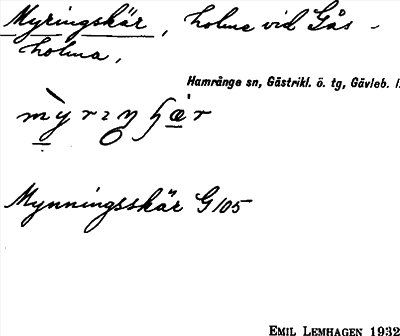 Myringskär, holme vid Gås-
holma,
Hamrånge sn, Gästrikl. ö. tg, Gävleb. l.
Mynningsskär G105
EMIL LEMHAGEN 1932